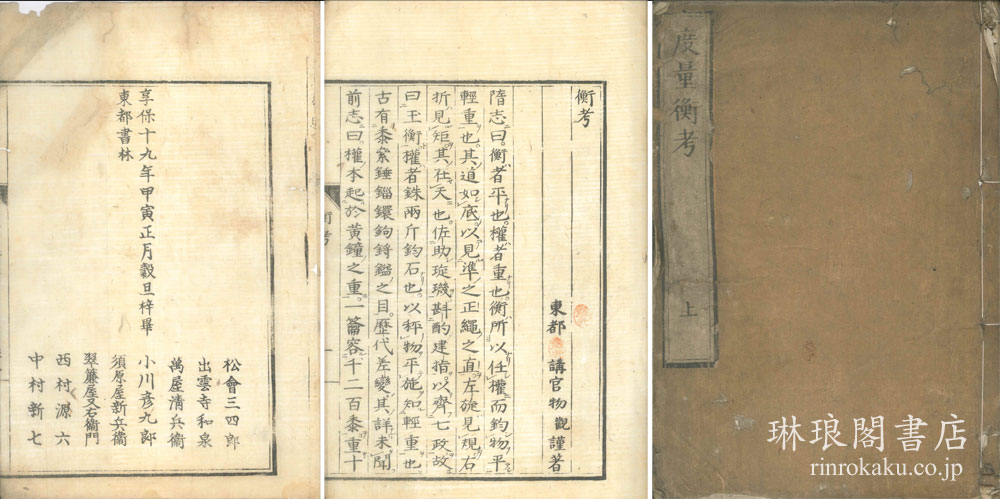 度量衡考
上
琳琅閣書店
rinrokaku.co.jp
衡考
東都 講官物觀謹著
隋志曰衡者平也權者重也衡所以任權而鈞物平
輕重也其道如底以見準之正繩之直左旋見規右
折見矩其在天也佐助璇璣斟酌建指以齊七政故
曰玉衡權者銖兩斤鈞石也以秤物平施知輕重也
古有黍絫錘錙鐶鉤鋝鎰之目歷代差變其詳未聞
前志曰權本起於黃鐘之重一龠容千二百黍重十
衡考
享保十九年甲寅正月穀旦梓畢
東都書林
松會三四郎
出雲寺和泉
萬屋清兵衞
小川彥九郎
須原屋新兵衞
翠簾屋又右衞門
西村源六
中村新七